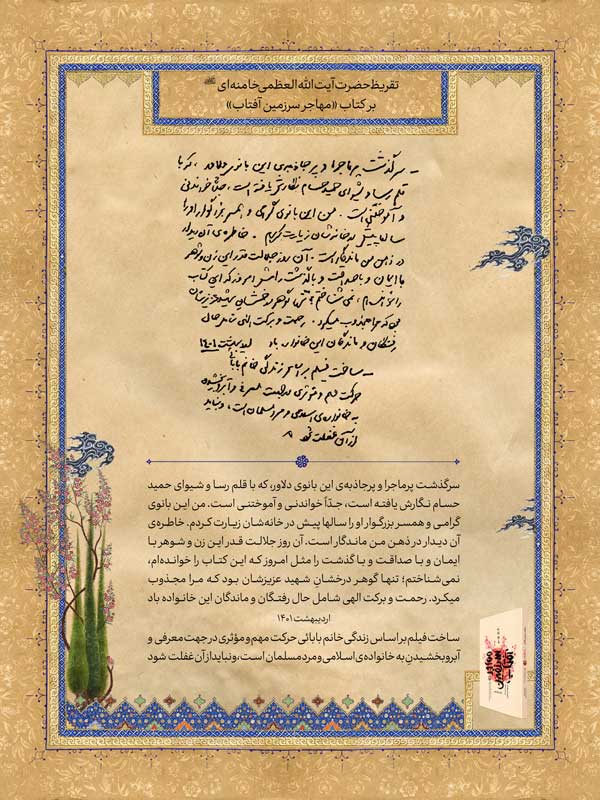 تقریظ حضرت آیت‌الله العظمی خامنه‌ای
بر کتاب «مهاجر سرزمین آفتاب»
ـ سرگذشت پرماجرا و پرجاذبه‌ی این بانوی دلاور، که با
قلم رسا و شیوای حمید حسام نگارش یافته است، جدّاً خواندنی
و آموختنی است. من این بانوی گرامی و همسر بزرگوار او را
سالها پیش در خانه‌شان زیارت کردم. خاطره‌ی آن دیدار
در ذهن من ماندگار است. آن روز جلالت قدر این زن و شوهر
با ایمان و با صداقت و با گذشت را مثل امروز که این کتاب
را خوانده‌ام، نمی‌شناختم؛ تنها گوهر درخشان شهید عزیزشان
بود که مرا مجذوب میکرد. رحمت و برکت الهی شامل حال
رفتگان و ماندگان این خانواده باد اردیبهشت ۱۴۰۱
ـ ساخت فیلم بر اساس زندگی خانم بابائی
حرکت مهم و مؤثری در جهت معرفی و آبرو بخشیدن
به خانواده‌ی اسلامی و مرد مسلمان است، و نباید
از آن غفلت شود
سرگذشت پرماجرا و پرجاذبه‌ی این بانوی دلاور، که با قلم رسا و شیوای حمید
حسام نگارش یافته است، جدّاً خواندنی و آموختنی است. من این بانوی
گرامی و همسر بزرگوار او را سالها پیش در خانه‌شان زیارت کردم. خاطره‌ی
آن دیدار در ذهن من ماندگار است. آن روز جلالت قدر این زن و شوهر با
ایمان و با صداقت و با گذشت را مثل امروز که این کتاب را خوانده‌ام،
نمی‌شناختم؛ تنها گوهر درخشانِ شهید عزیزشان بود که مرا مجذوب
میکرد. رحمت و برکت الهی شامل حال رفتگان و ماندگان این خانواده باد
اردیبهشت ۱۴۰۱
ساخت فیلم بر اساس زندگی خانم بابائی حرکت مهم و مؤثری در جهت معرفی و
آبرو بخشیدن به خانواده‌ی اسلامی و مرد مسلمان است، و نباید از آن غفلت شود